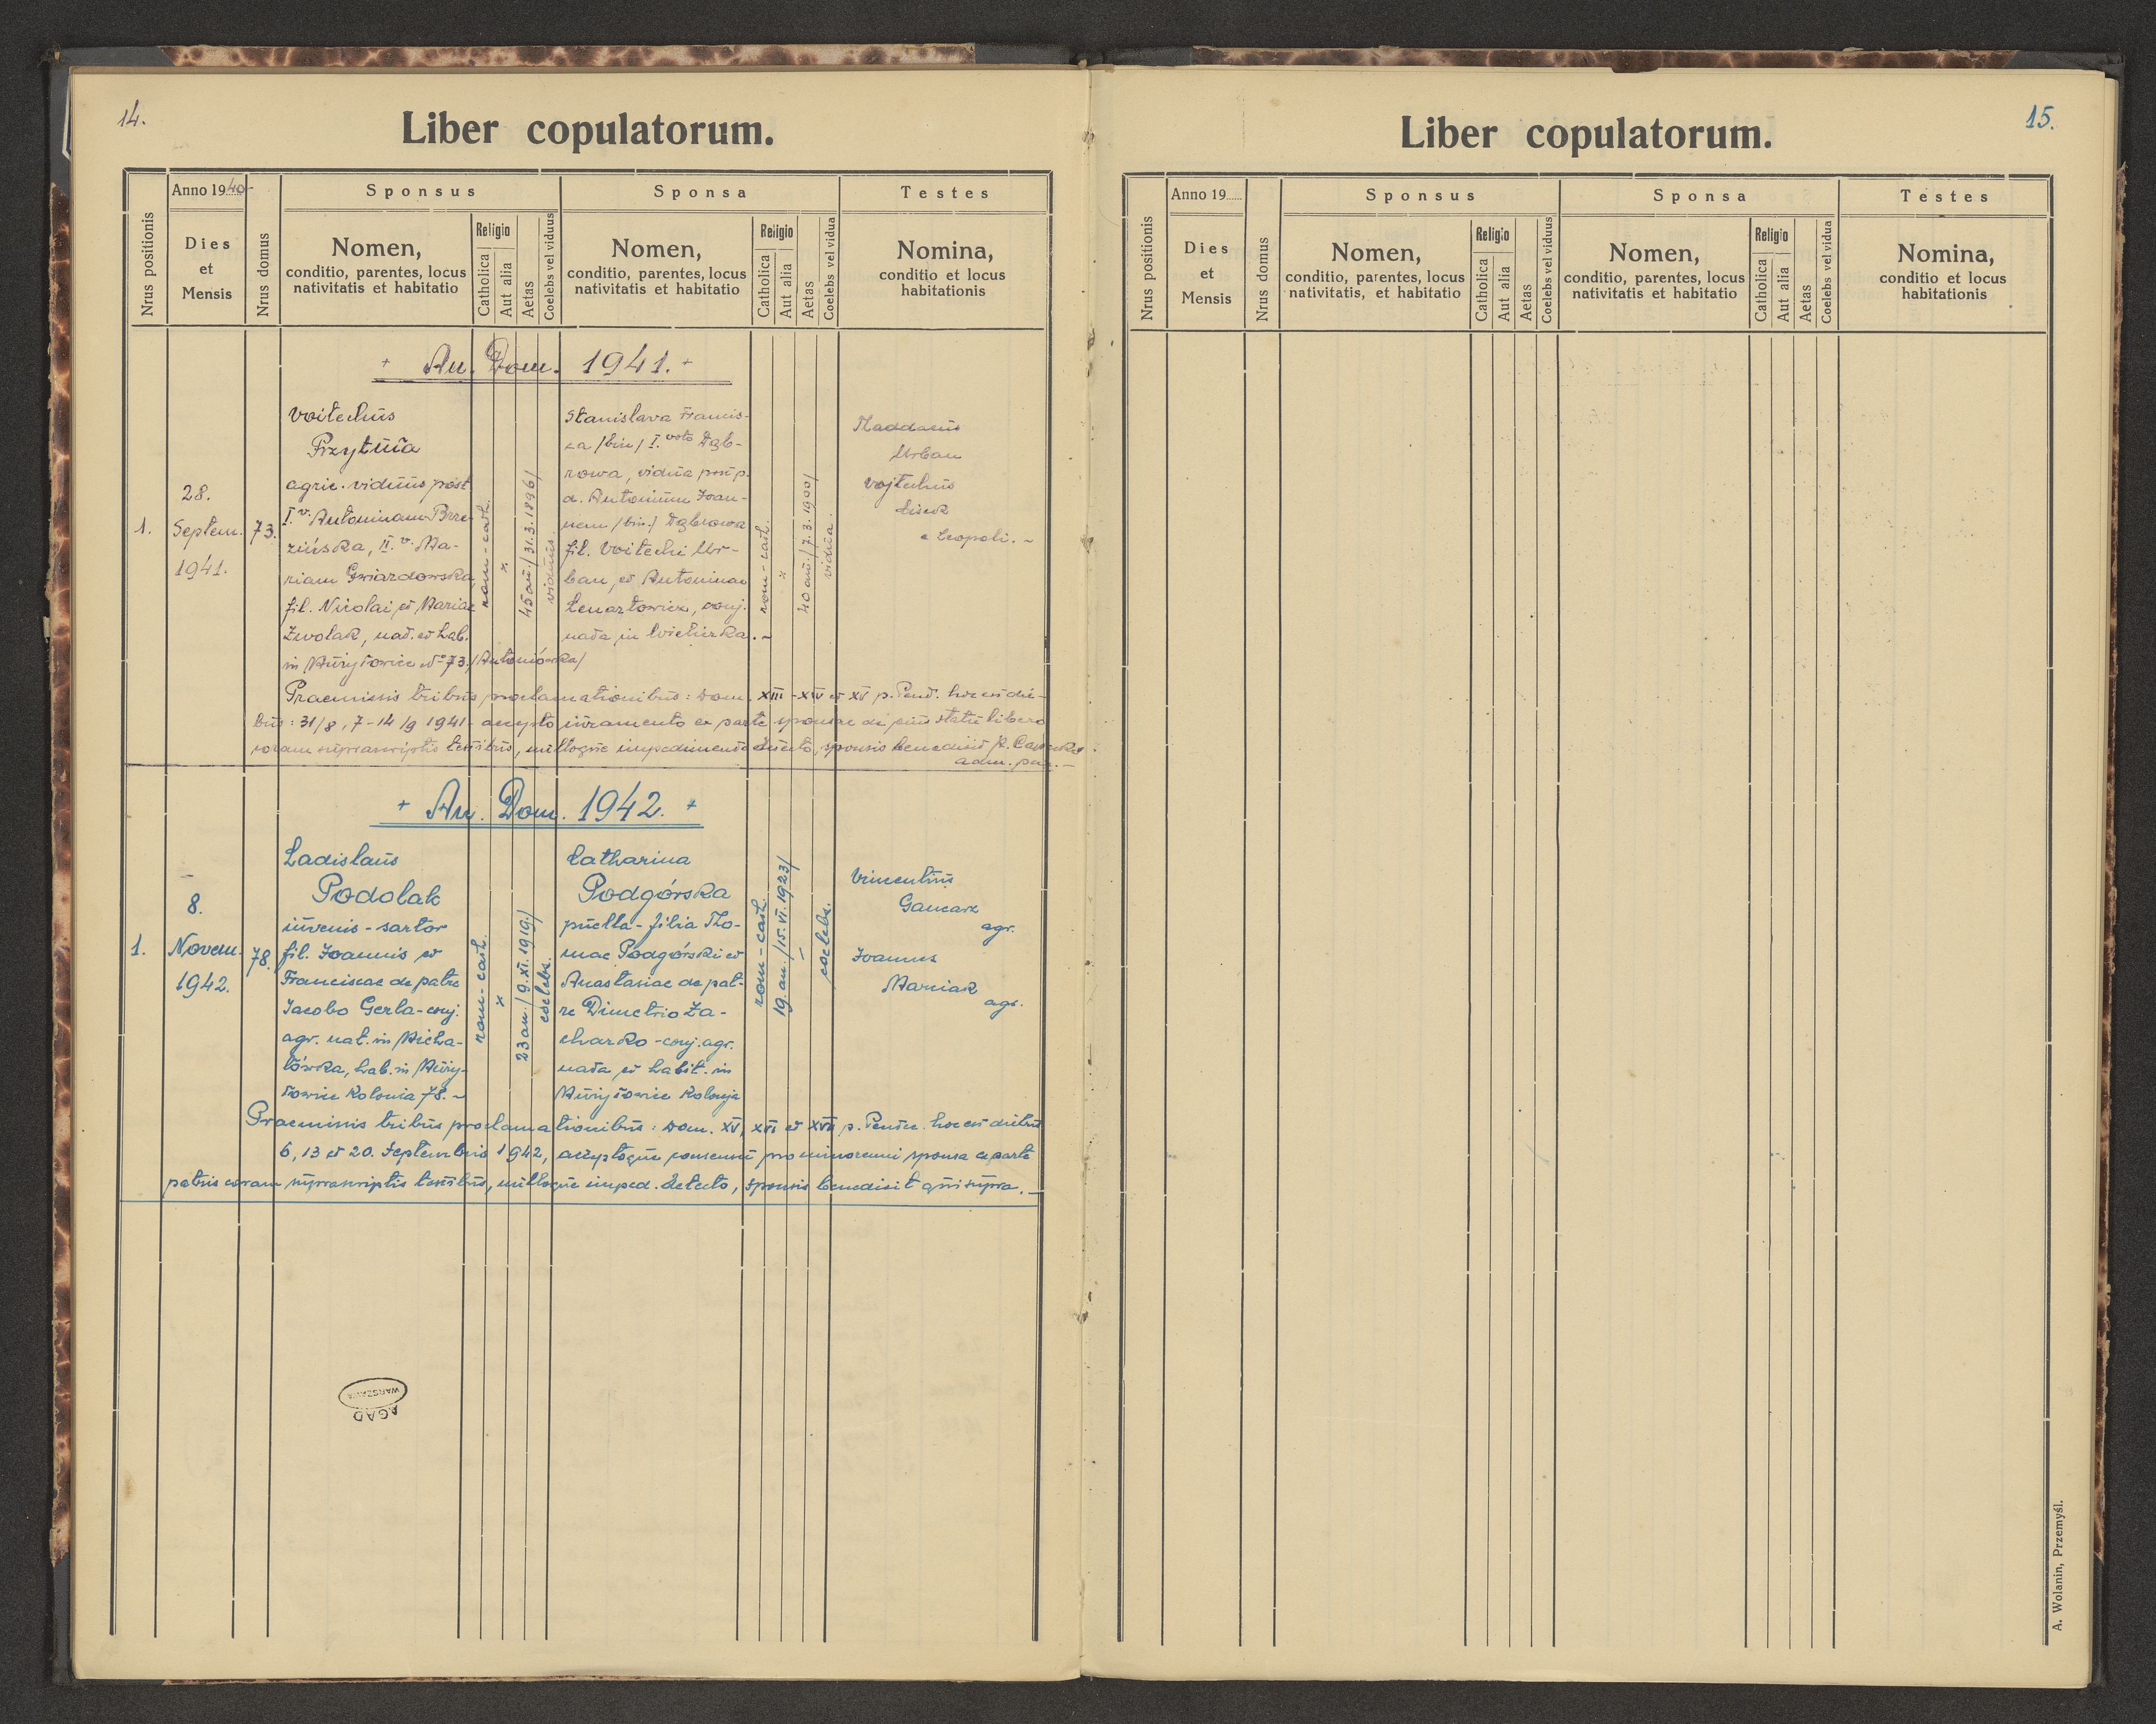 14.
Liber copulatorum.
Nrus positionis
Anno 1940-
Dies
et
Mensis
Nrus domus
Sponsus
Nomen,
conditio, parentes, locus
nativitatis et habitatio
Religio
Catholica
Aut alia
Aetas
Coelebs vel viduus
Sponsa
Nomen,
conditio, parentes, locus
nativitatis et habitatio
Religio
Catholica
Aut alia
Aetas
Coelebs vel vidua
Testes
Nomina,
conditio et locus
habitationis
+ An. Dom. 1941. +
1.
28.
Septem.
1941.
73.
Voitechus
Przytuła
agric. viduus post
I.v. Antoninam Brze-
zińska, II.v. Ma-
riam Gwiazdowska,
fil. Nicolai et Mariae
Zwolak, nat. et hab.
in Muryłowice No 73. /Antoniówka/
rom-cath.
x
45 an. /31.3.1896/
viduus
Stanislava Francis-
ca /bin/ I.voto Dąb-
rowa, vidua post p.
d. Antonium Joan-
nem /bin./ Dąbrowa
fil. Voitechi Ur-
ban, et Antoninae
Lenartowicz, conj.
nata in
rom-cath.
x
40 an. /7.3.1900/
vidua.
Thaddaeus
Urban
Vojtechus
e Leopoli. -
Praemissis tribus proclamationibus: Dom. XIII - XIV et XV p. Pent. hoc est die-
bus: 31/8, 7-14/9 1941 - accepto iuramento ex parte sponsae de eius statu libero
coram suprascriptis testibus, nulloque impedimento detecto, sponsis benedixit
adm. par. -
+ An. Dom. 1942. +
1.
8.
Novem.
1942.
78.
Ladislaus
Podolak
iuvenis - sartor
fil. Joannis et
Franciscae de patre
Jacobo Gerla - conj.
agr. nat. in Micha-
łówka, hab. in Mury-
łowice Kolonia 78. -
rom-cath.
x
23 an. /9.XI.1919./
coelebs.
Catharina
Podgórska
puella - filia Tho-
mae Podgórski et
Anastasiae de pat-
re Dimetrio Za-
charko - conj. agr.
nata et habit. in
Muryłowice Kolonja
rom-cath.
19. an. /15.VI.1923/
coelebs.
Vincentius
Gancarz
agr.
Joannes
Marciak
agr.
Praemissis tribus proclamationibus: Dom. XV, XVI et XVII p. Pentec. hoc est diebus
6, 13 et 20. Septembris 1942, acceptoque consensu pro minorenni sponsa a parte
patris coram suprascriptis testibus, nulloque imped. detecto, sponsis benedixit qui supra. -
WARSZAWA
AGAD
15.
Liber copulatorum.
Nrus positionis
Anno 19......
Dies
et
Mensis
Nrus domus
Sponsus
Nomen,
conditio, parentes, locus
nativitatis, et habitatio
Religio
Catholica
Aut alia
Aetas
Coelebs vel viduus
Sponsa
Nomen,
conditio, parentes, locus
nativitatis et habitatio
Religio
Catholica
Aut alia
Aetas
Coelebs vel vidua
Testes
Nomina,
conditio et locus
habitationis
A. Wolanin, Przemyśl.